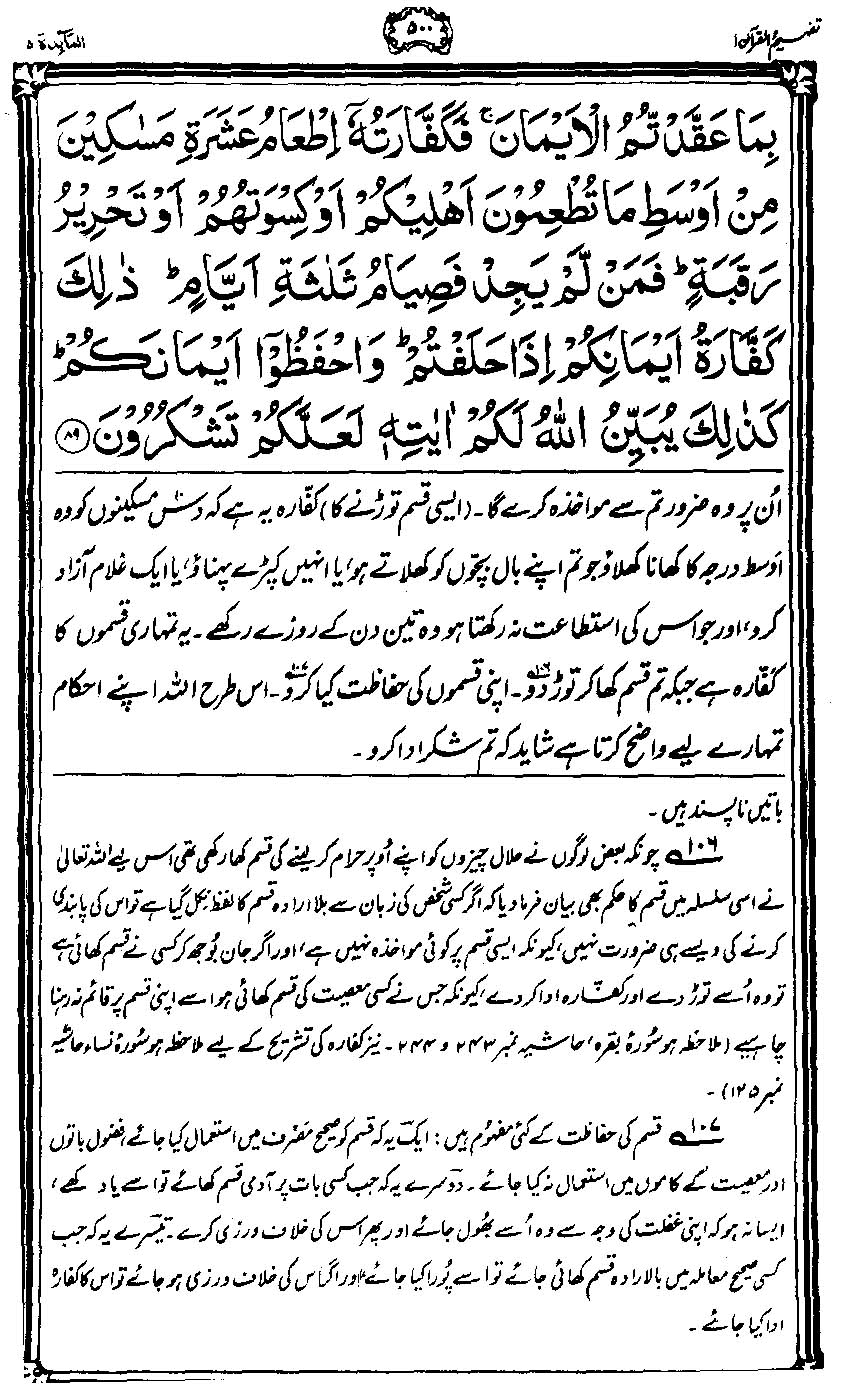 تفہیم القرآن ۱
۵۰۰
المآئدة ۵
بِمَا عَقَّدْتُّمُ الْاَيْمَانَ ۚ فَكَفَّارَتُهٗٓ اِطْعَامُ عَشَرَةِ مَسٰكِيْنَ
مِنْ اَوْسَطِ مَا تُطْعِمُوْنَ اَهْلِيْكُمْ اَوْ كِسْوَتُهُمْ اَوْ تَحْرِيْرُ
رَقَبَةٍ ؕ فَمَنْ لَّمْ يَجِدْ فَصِيَامُ ثَلٰثَةِ اَيَّامٍ ؕ ذٰلِكَ
كَفَّارَةُ اَيْمَانِكُمْ اِذَا حَلَفْتُمْ ؕ وَاحْفَظُوْٓا اَيْمَانَكُمْ ؕ
كَذٰلِكَ يُبَيِّنُ اللّٰهُ لَكُمْ اٰيٰتِهٖ لَعَلَّكُمْ تَشْكُرُوْنَ ﴿۸۹﴾
اُن پر وہ ضرور تم سے مواخذہ کرے گا۔ (ایسی قسم توڑنے کا) کفّارہ یہ ہے کہ دس مسکینوں کو وہ
اوسط درجہ کا کھانا کھلاؤ جو تم اپنے بال بچّوں کو کھلاتے ہو، یا انہیں کپڑے پہناؤ، یا ایک غلام آزاد
کرو، اور جو اس کی استطاعت نہ رکھتا ہو وہ تین دن کے روزے رکھے۔ یہ تمہاری قسموں کا
کفّارہ ہے جبکہ تم قسم کھا کر توڑ دو۱۰۶۔ اپنی قسموں کی حفاظت کیا کرو۱۰۷۔ اس طرح اللہ اپنے احکام
تمہارے لیے واضح کرتا ہے شاید کہ تم شکر ادا کرو۔
باتیں ناپسند ہیں۔
۱۰۶ چونکہ بعض لوگوں نے حلال چیزوں کو اپنے اُوپر حرام کر لینے کی قسم کھا رکھی تھی اس لیے اللہ تعالیٰ
نے اسی سلسلہ میں قسم کا حکم بھی بیان فرما دیا کہ اگر کسی شخص کی زبان سے بلا ارادہ قسم کا لفظ نکل گیا ہے تو اس کی پابندی
کرنے کی ویسے ہی ضرورت نہیں، کیونکہ ایسی قسم پر کوئی مواخذہ نہیں ہے، اور اگر جان بُوجھ کر کسی نے قسم کھائی ہے
تو وہ اُسے توڑ دے اور کفّارہ ادا کر دے، کیونکہ جس نے کسی معصیت کی قسم کھائی ہو اسے اپنی قسم پر قائم نہ رہنا
چاہیے (ملاحظہ ہو سُورۂ بقرہ، حاشیہ نمبر ۲۴۳ و ۲۴۴۔ نیز کفارہ کی تشریح کے لیے ملاحظہ ہو سُورۂ نساء حاشیہ
نمبر ۱۲۵)۔
۱۰۷ قسم کی حفاظت کے کئی مفہُوم ہیں: ایک یہ کہ قسم کو صحیح مَصرَف میں استعمال کیا جائے، فضول باتوں
اور معصیت کے کاموں میں استعمال نہ کیا جائے۔ دوسرے یہ کہ جب کسی بات پر آدمی قسم کھائے تو اسے یاد رکھے،
ایسا نہ ہو کہ اپنی غفلت کی وجہ سے وہ اُسے بھُول جائے اور پھر اس کی خلاف ورزی کرے۔ تیسرے یہ کہ جب
کسی صحیح معاملہ میں بالارادہ قسم کھائی جائے تو اسے پُورا کیا جائے اور اگر اس کی خلاف ورزی ہو جائے تو اس کا کفارہ
ادا کیا جائے۔